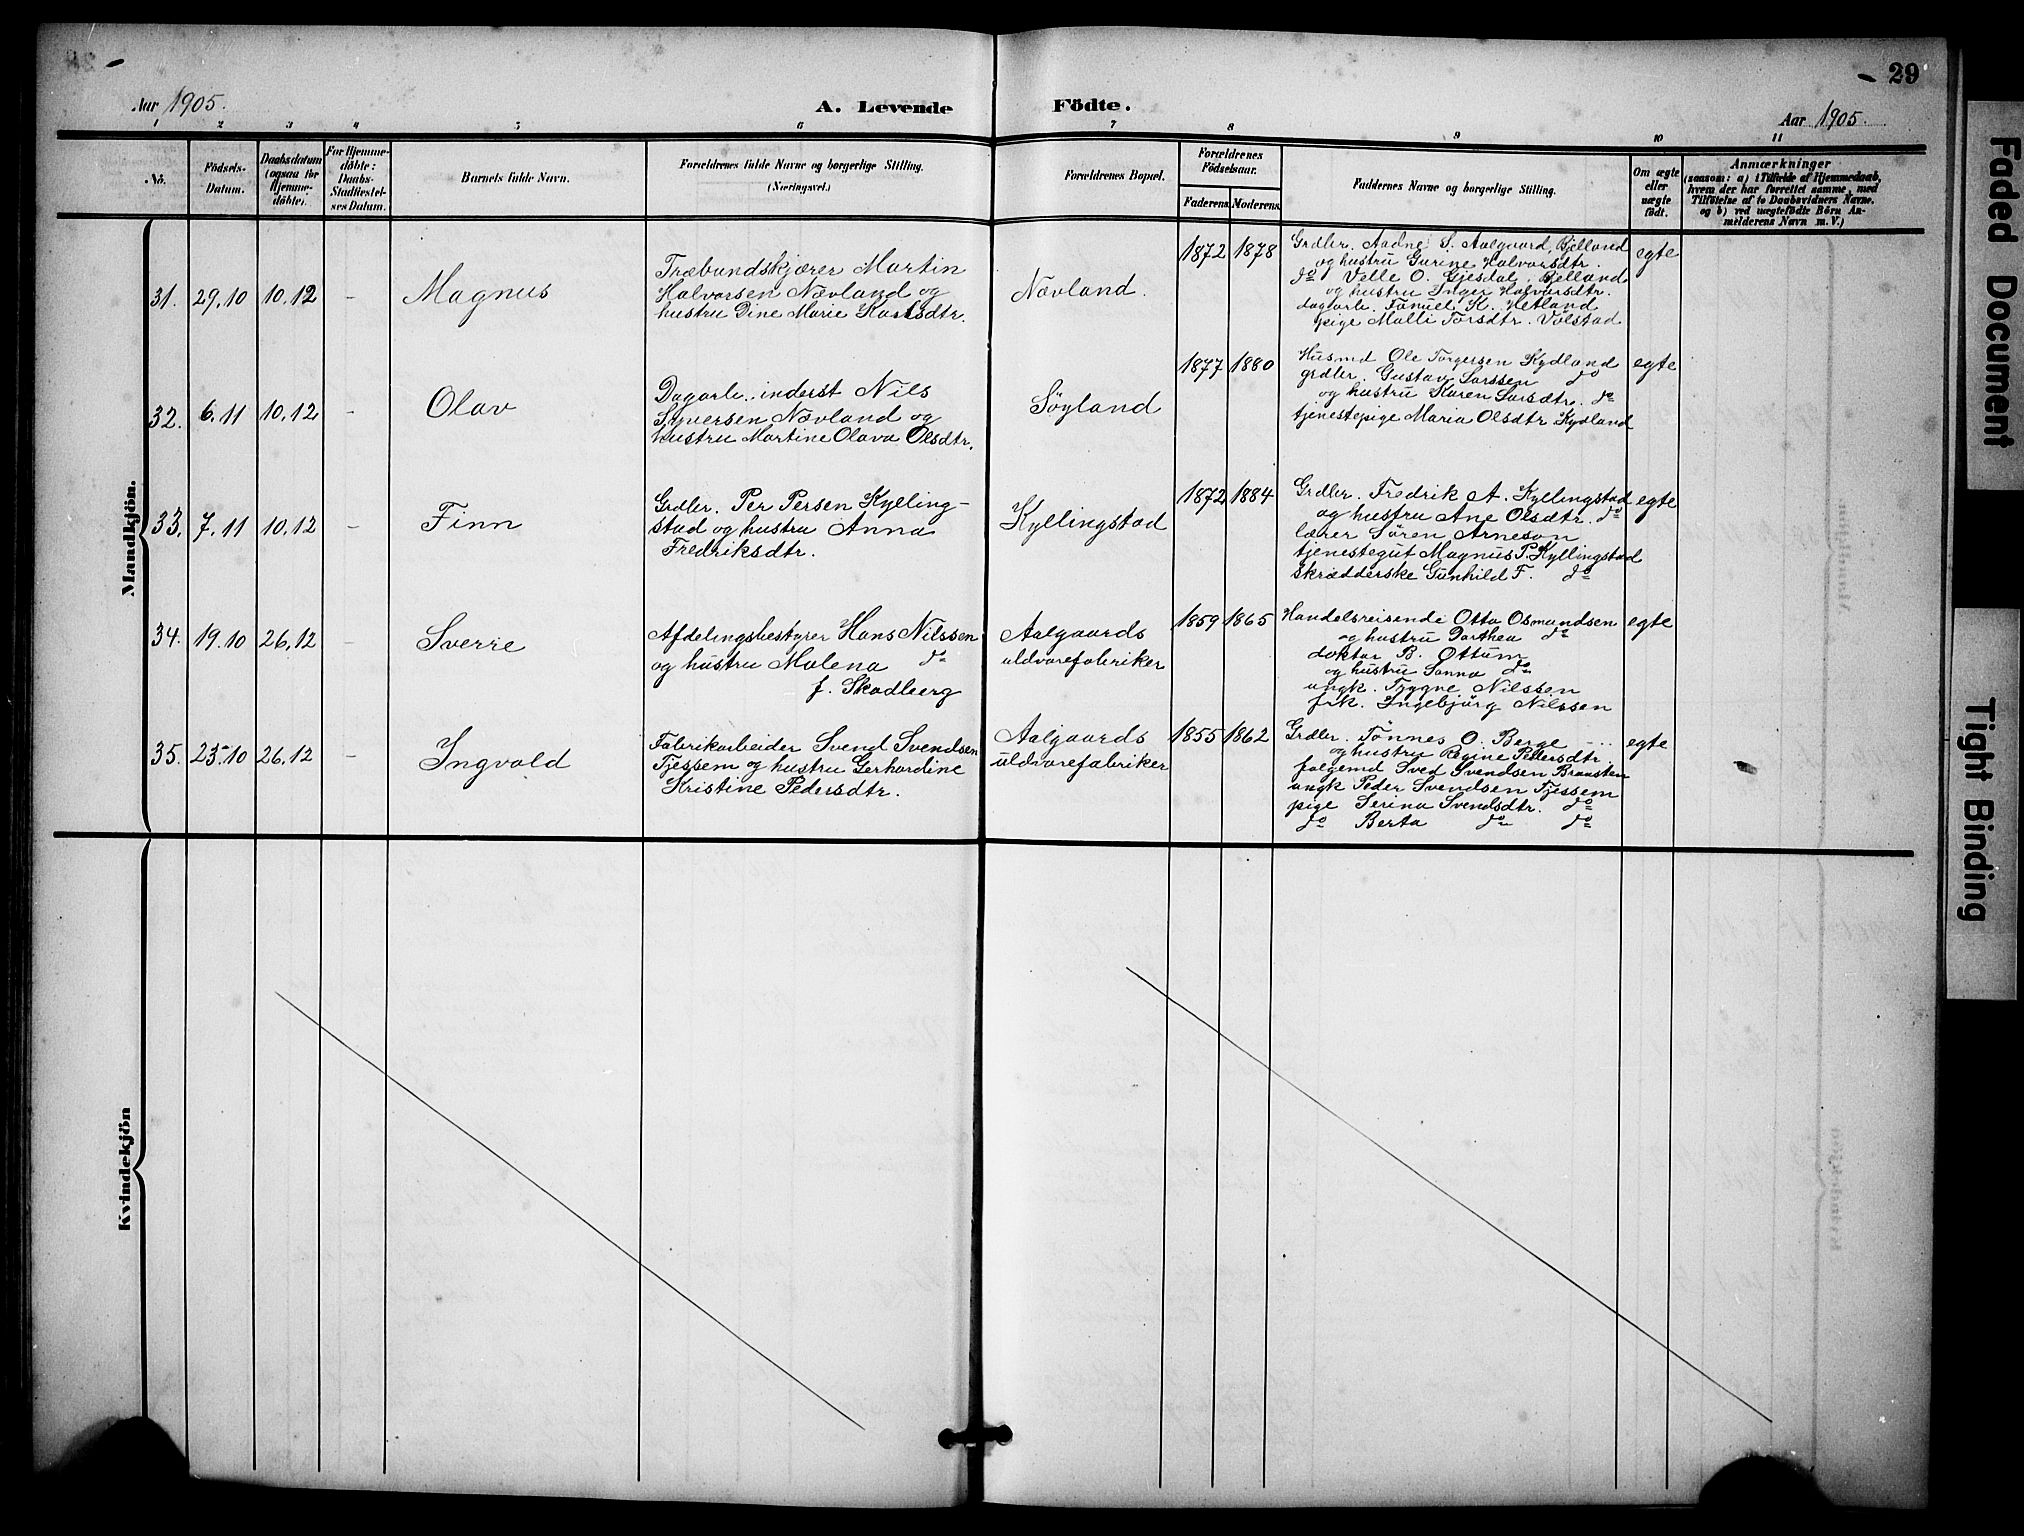 29
Aar 1905.
A. Levende Födte.
Aar 1905.
1 2 3 4 5 6 7 8 9 10 11
No.
Födsels-
Datum.
Daabsdatum
(ogsaa for
Hjemme-
döbte).
For Hjemme-
döbte:
Daabs-
Stadfæstel-
ses Datum.
Barnets fulde Navn.
Forældrenes fulde Navne og borgerlige Stilling.
(Næringsvei.)
Forældrenes Bopæl.
Forældrenes
Födselsaar.
Faderens.
Moderens.
Faddernes Navne og borgerlige Stilling.
Om ægte
eller
uægte
födt.
Anmærkninger
(saasom: a) i Tilfælde af Hjemmedaab,
hvem der har forrettet samme, med
Tilföielse af to Daabsvidners Navne.
og b) ved uægtefödte Börn An-
melderens Navn m. V.)
Mandkjön.
31.
29.10
10.12
-
Magnus
Træbundskjærer Martin
Halvorsen Nævland og
hustru Dine Marie Karlsdtr.
Nævland.
1872
1878
Grdler. Aadne S. Aalgaard, Bjelland
og hustru Gurine Halvorsdtr.
do Velle O. Gjesdal, Bjelland
og hustru Inger Halvorsdtr.
dagarb. Fanuel K. Hetland
pige Malli Torsdtr. Vølstad
egte
32.
6.11
10.12
-
Olav
Dagarb. inderst Nils
Syversen Nævland og
hustru Martine Olava Olsdtr.
Søyland
1877
1880
Husmd Ole Torgersen Kydland
grdler. Gustav Larssen do
og hustru Karen Larsdtr. do
tjenestepige Maria Olsdtr Kydland
egte
33.
7.11
10.12
-
Finn
Grdler. Per Persen Kylling-
stad og hustru Anna
Fredriksdtr.
Kyllingstad
1872
1884
Grdler. Fredrik A. Kyllingstad
og hustru Ane Olsdtr. do
lærer Søren Arneson
tjenestegut Magnus P. Kyllingstad
skrædderske Gunhild F. do
egte
34.
19.10
26.12
-
Sverre
Afdelingsbestyrer Hans Nilssen
og hustru Malena do
f. Skadberg
Aalgaards
uldvarefabriker
1859
1865
Handelsreisende Otto Osmundsen
og hustru Dorthea do
doktor B. Ottum
og hustru Sanna do
ungk. Tryggve Nilssen
frk. Ingebjørg Nilssen
egte
35.
23.10
26.12
-
Ingvald
Fabrikarbeider Svend Svendsen
Tjessem og hustru Gerhardine
Kristine Pedersdtr.
Aalgaards
uldvarefabriker
1855
1862
Grdler. Tønnes O. Berge
og hustru Regine Pedersdtr.
folgemd Sved Svendsen Braasten
ungk Peder Svendsen Tjessem
pige Serina Svendsdtr. do
do Berta do do
egte
Kvindekjön
Faded Document
Tight Binding